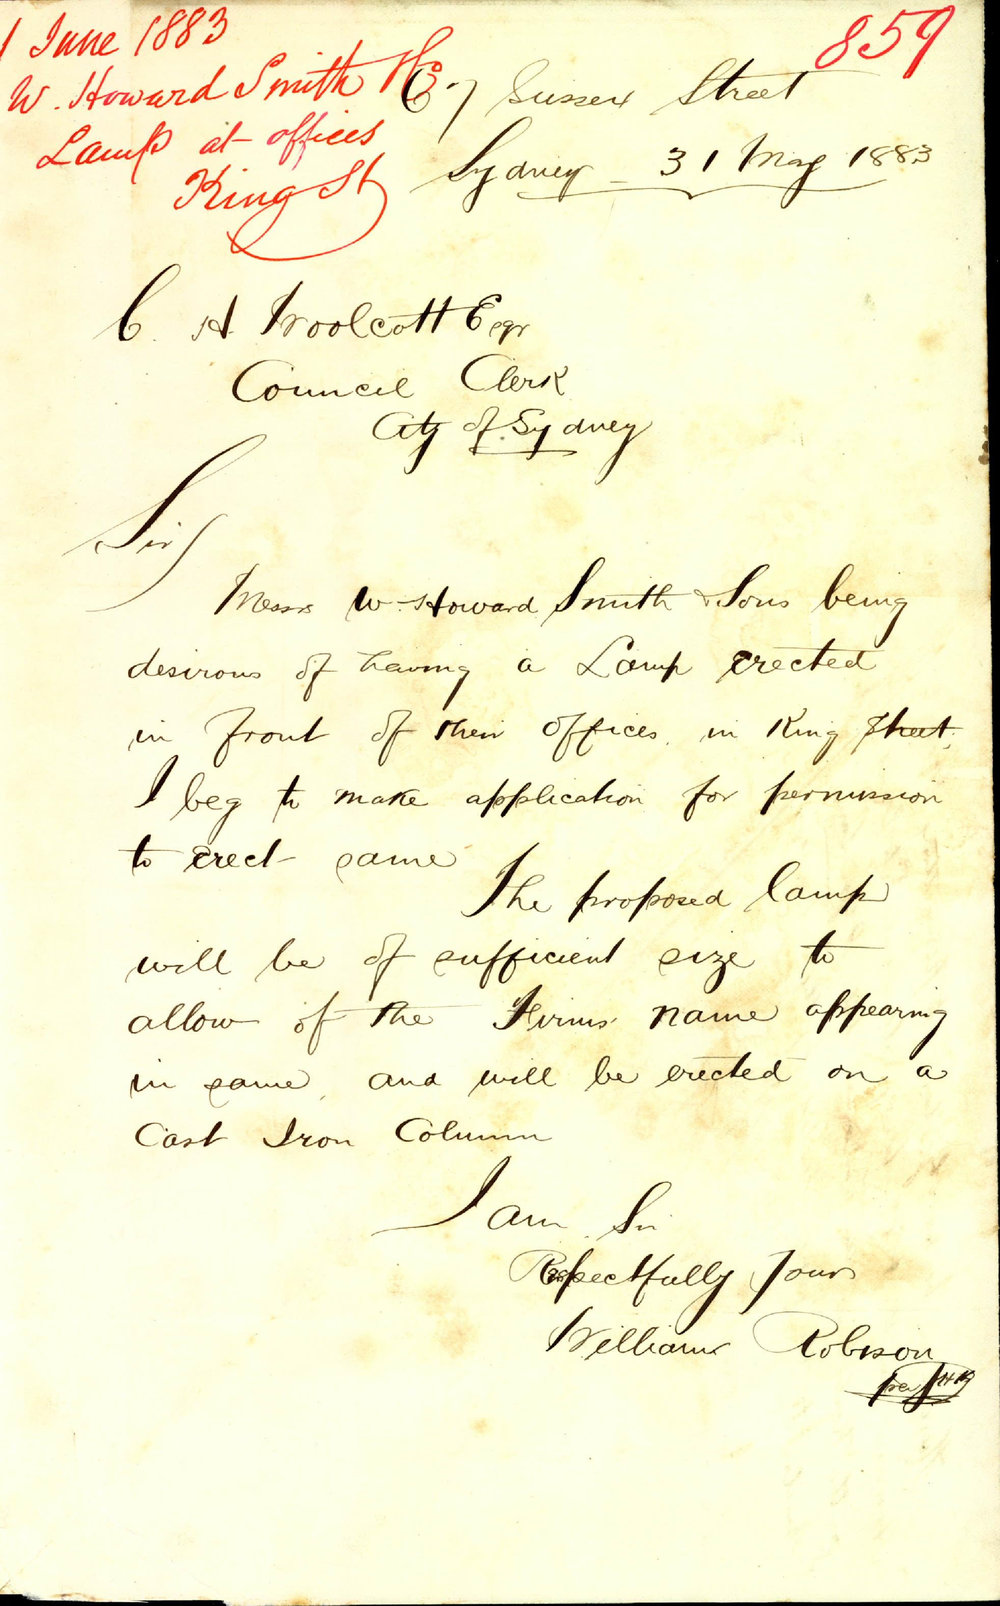 1 June 1883
859
W. Howard Smith
Lamp at offices
King St
Sussex Street
Sydney 31 May 1883
C. H Woolcott Esqr
Council Clerk
City of Sydney
Sir
Messrs W. Howard Smith & Sons being
desirous of having a Lamp erected
in front of their offices, in King Street,
I beg to make application for permission
to erect same
The proposed lamp
will be of sufficient size to
allow of the Firms name appearing
in same, and will be erected on a
Cast Iron Column
I am Sir
Respectfully Yours
William Robison
per